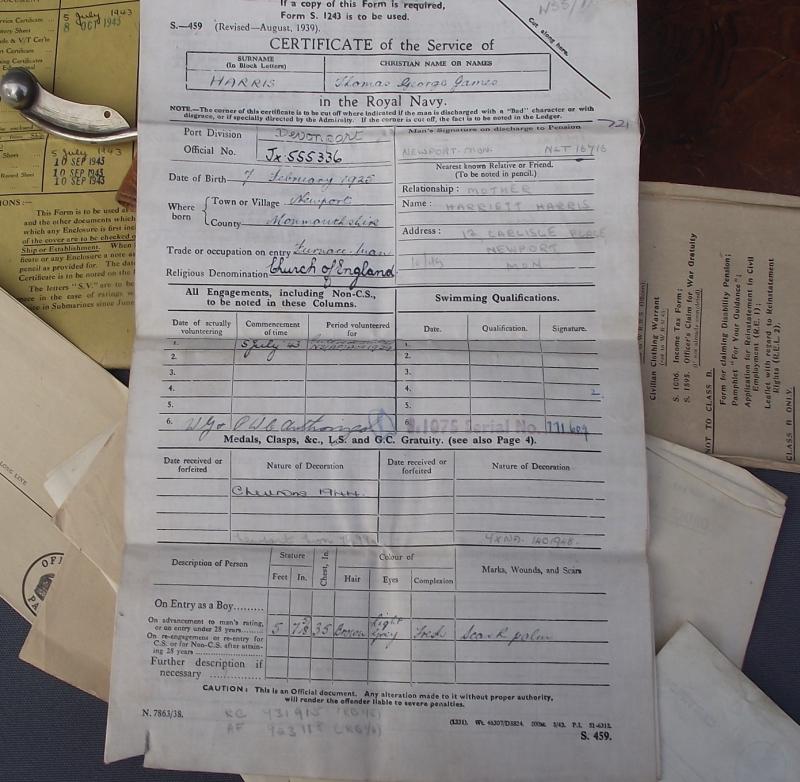 If a copy of this Form is required,
Form S. 1243 is to be used.
S.—459 (Revised—August, 1939).
Cut along here.
CERTIFICATE of the Service of
SURNAME
(In Block Letters)
CHRISTIAN NAME OR NAMES
HARRIS
Thomas George James
in the Royal Navy.
NOTE.—The corner of this certificate is to be cut off where indicated if the man is discharged with a "Bad" character or with
disgrace, or if specially directed by the Admiralty. If the corner is cut off, the fact is to be noted in the Ledger.
Port Division Devonport
Official No. Jx 555336
Date of Birth 7 February 1925
Where born
Town or Village Newport
County Monmouthshire
Trade or occupation on entry Furnace Man
Religious Denomination Church of England
Man's Signature on discharge to Pension
NEWPORT. MON.
Nearest known Relative or Friend.
(To be noted in pencil.)
Relationship: MOTHER
Name: HARRIETT HARRIS
Address: 12 CARLISLE PLACE
NEWPORT
MON
All Engagements, including Non-C.S.,
to be noted in these Columns.
Swimming Qualifications.
Date of actually
volunteering
Commencement
of time
Period volunteered
for
Date.
Qualification.
Signature.
1. 5 July '43
2.
3.
4.
5.
6.
1.
2.
3.
4.
5.
6.
S.1075 Serial No.
Medals, Clasps, &c., L.S. and G.C. Gratuity. (see also Page 4).
Date received or
forfeited
Nature of Decoration
Date received or
forfeited
Nature of Decoration
Chevrons 1944.
Description of Person
Stature
Feet
In.
Chest, In.
Colour of
Hair
Eyes
Complexion
Marks, Wounds, and Scars
On Entry as a Boy
On advancement to man's rating,
or on entry under 28 years
5 35 Brown Light Grey Fresh Scar R palm
On re-engagement or re-entry for
C.S. or for Non-C.S. after attain-
ing 28 years
Further description if
necessary
CAUTION: This is an Official document. Any alteration made to it without proper authority,
will render the offender liable to severe penalties.
N. 7863/38.
S. 459.
5 July 1943
8 OCT 1943
5 July 1943
10 SEP 1943
10 SEP 1943
10 SEP 1943
This Form is to be used
and the other documents which
Ship or Establishment.
Civilian Clothing Warrant
S. 1036. Income Tax Form;
S. 1895. Officer's Claim for War Gratuity
NOT TO CLASS B.
Form for claiming Disability Pension;
Pamphlet "For Your Guidance";
Application for Reinstatement in Civil
Employment (R.E. 1);
Leaflet with regard to Reinstatement
Rights (R.E.L. 2).
CLASS B ONLY.